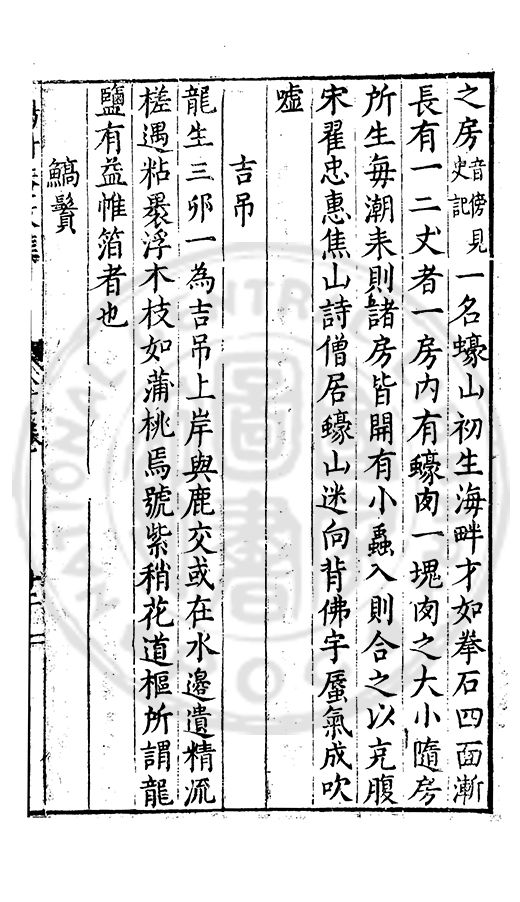 之房音傍見史記一名蠔山初生海畔才如拳石四面漸
長有一二丈者一房內有蠔肉一塊肉之大小隨房
所生每潮來則諸房皆開有小蟲入則合之以充腹
宋翟忠惠焦山詩僧居蠔山迷向背佛宇蜃氣成吹
噓
吉吊
龍生三卵一為吉吊上岸與鹿交或在水邊遺精流
槎遇粘褁浮木枝如蒲桃焉號紫稍花道樞所謂龍
鹽有益帷箔者也
鰝鬚